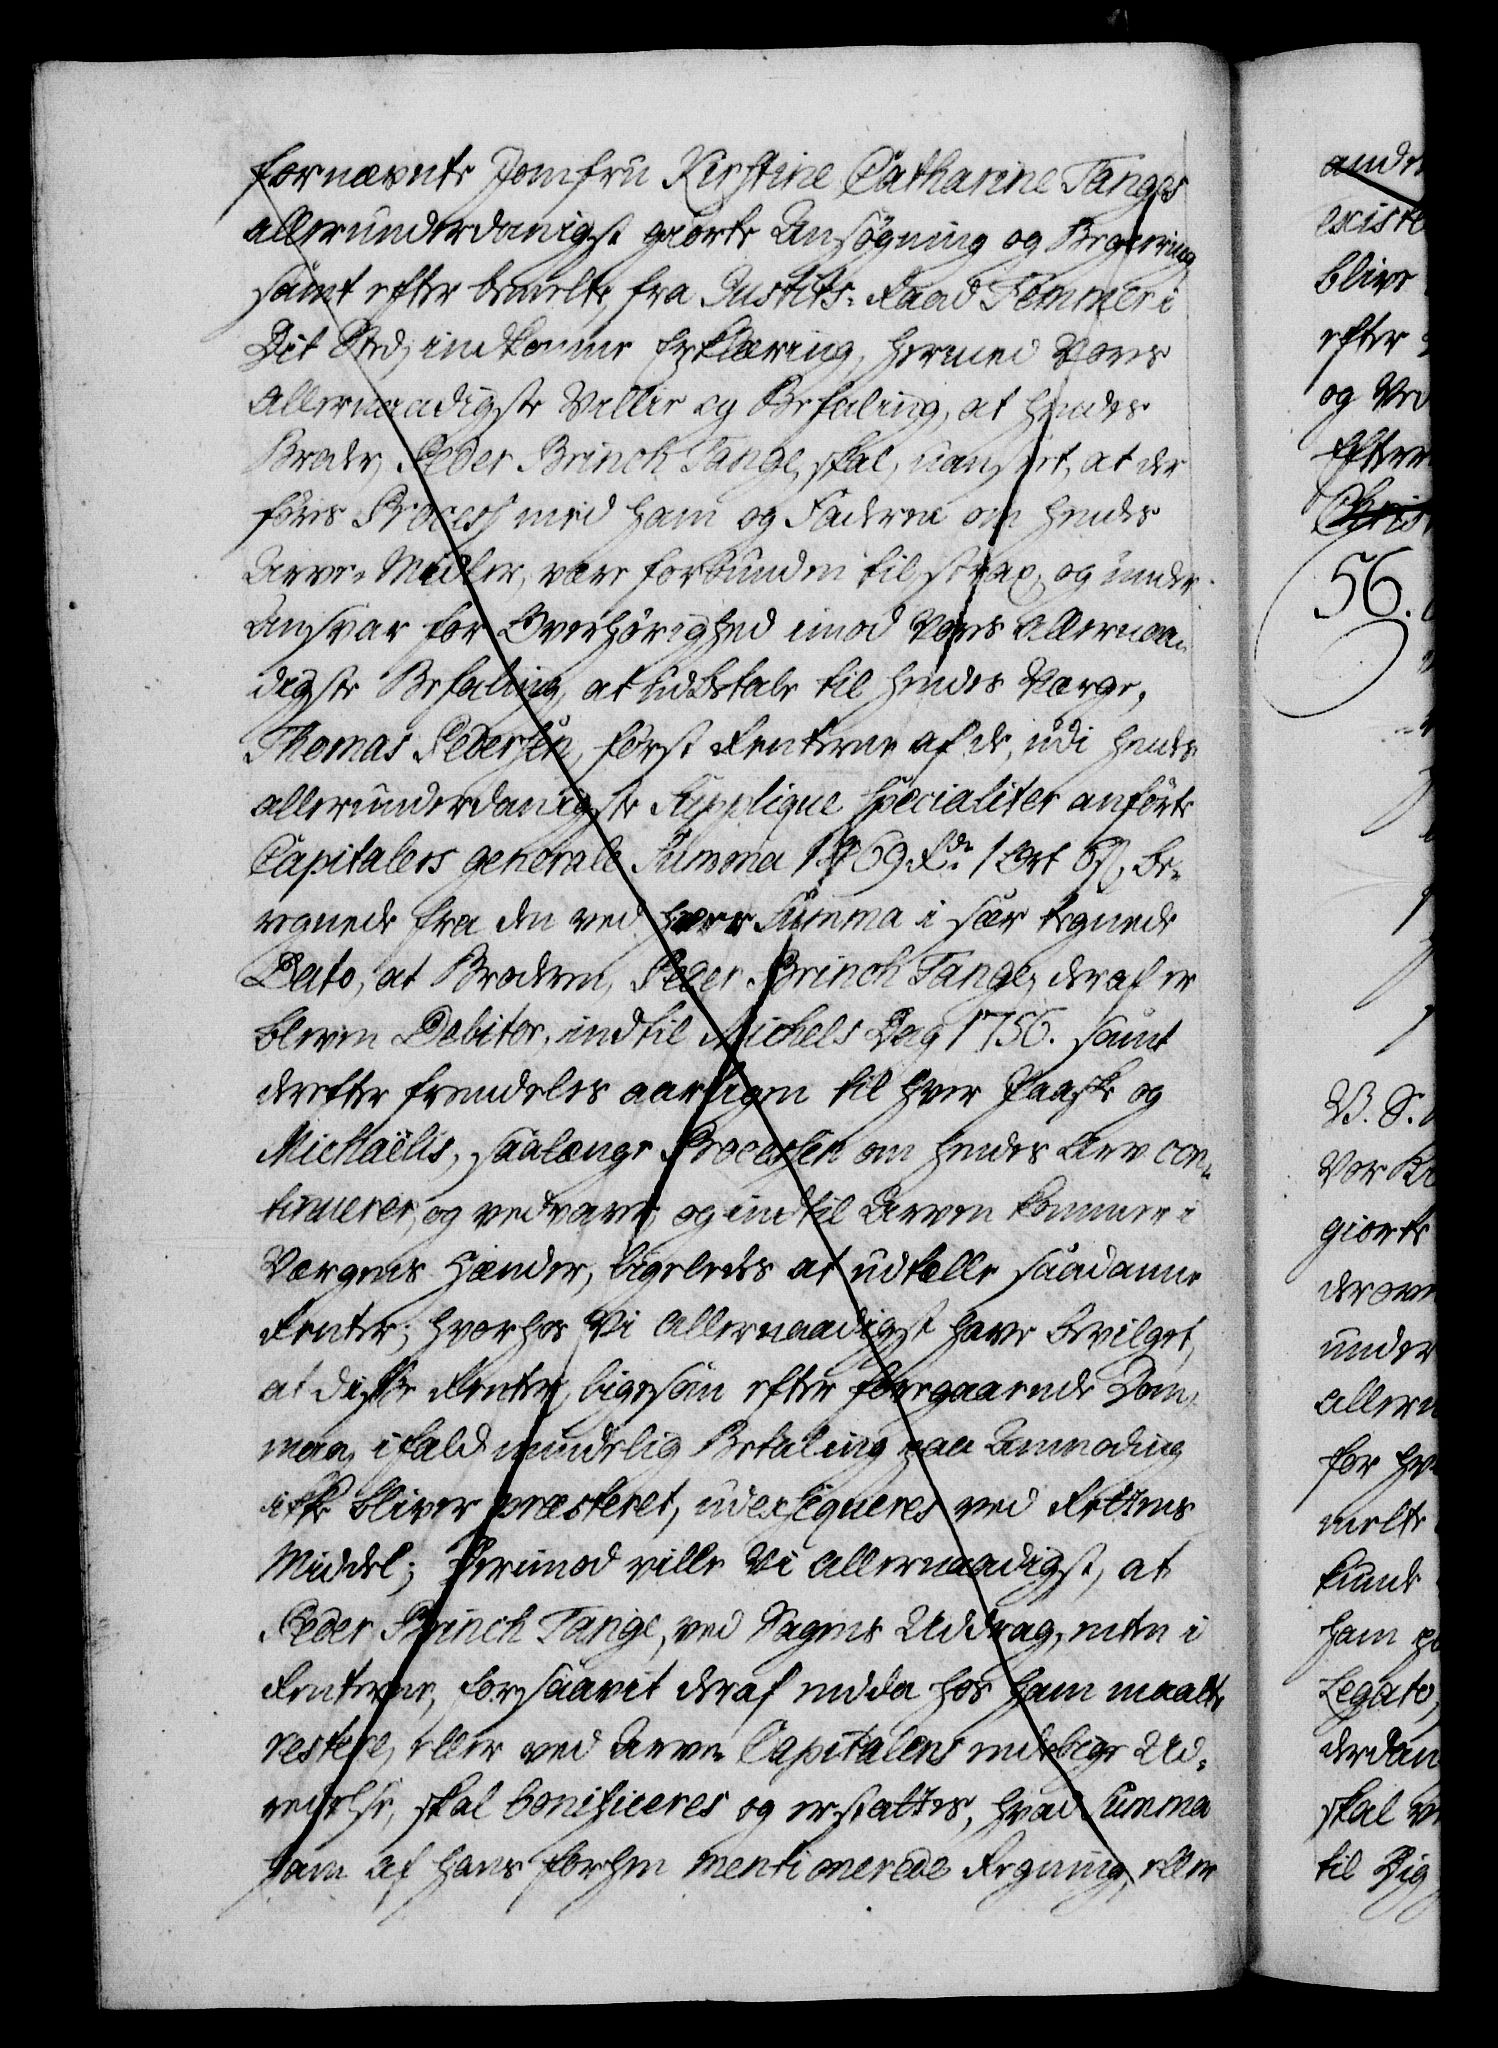 fornævnte Jomfru Kirstine Catharine Tanges
allerunderdanigst giorte Ansøgning og Begiering
samt efter bemelte, fra Justits-Raad Temmer i
Dit Sted, indkomne Erklæring, hermed Vores
allernaadigste Villie og Befaling, at hendes
Broder, Peder Brinch Tange, skal, uanseet, at der
føres Process med ham og Faderen om hendes
Arve-Midler, være forbunden til strax, og under
Ansvar for Overhørighed imod Vores allernaa-
digste Befaling, at udbetale til hendes Værge,
Thomas Pedersen, først Renterne af de, udi hendes
allerunderdanigste Supplique specialiter anførte
Capitalers generale Summa 1769 Rdr. 1 Ort 6 s, be-
regnede fra den ved hver Summa i sær tegnede
Dato, at Broderen, Peder Brinch Tange, deraf er
bleven Debitor, indtil Michels Dag 1756. samt
derefter fremdeles aarligen til hver Paaske og
Michaëlis, saalænge Processen om hendes Arv con-
tinuerer, og vedvarer, og indtil Arven kommer i
Værgens Hænder, ligeledes at udtælle saadanne
Renter; hvorhos Vi allernaadigst have bevilget,
at disse Renter, ligesom efter foregaaende Dom,
maa, ifald mindelig Betaling paa Anmoding
ikke bliver præsteret, udexequeres ved Rettens
Middel; Derimod ville Vi allernaadigst, at
Peder Brinch Tange, ved Sagens Uddrag, enten i
Renterne, forsaavit deraf endda hos ham maatte
restere, eller ved Arve-Capitalens endelige Ud-
redelse, skal bonificeres og erstattes, hvad Summa
ham af hans forhen mentionerede Regning, eller
anden
existe
blive
efter
og Ved
Efter
Chris
56.
V. S.
Vor
giorte
deroven
under
allern
for hv
melte
kunde
ham
Legato,
derdan
skal
til Dig